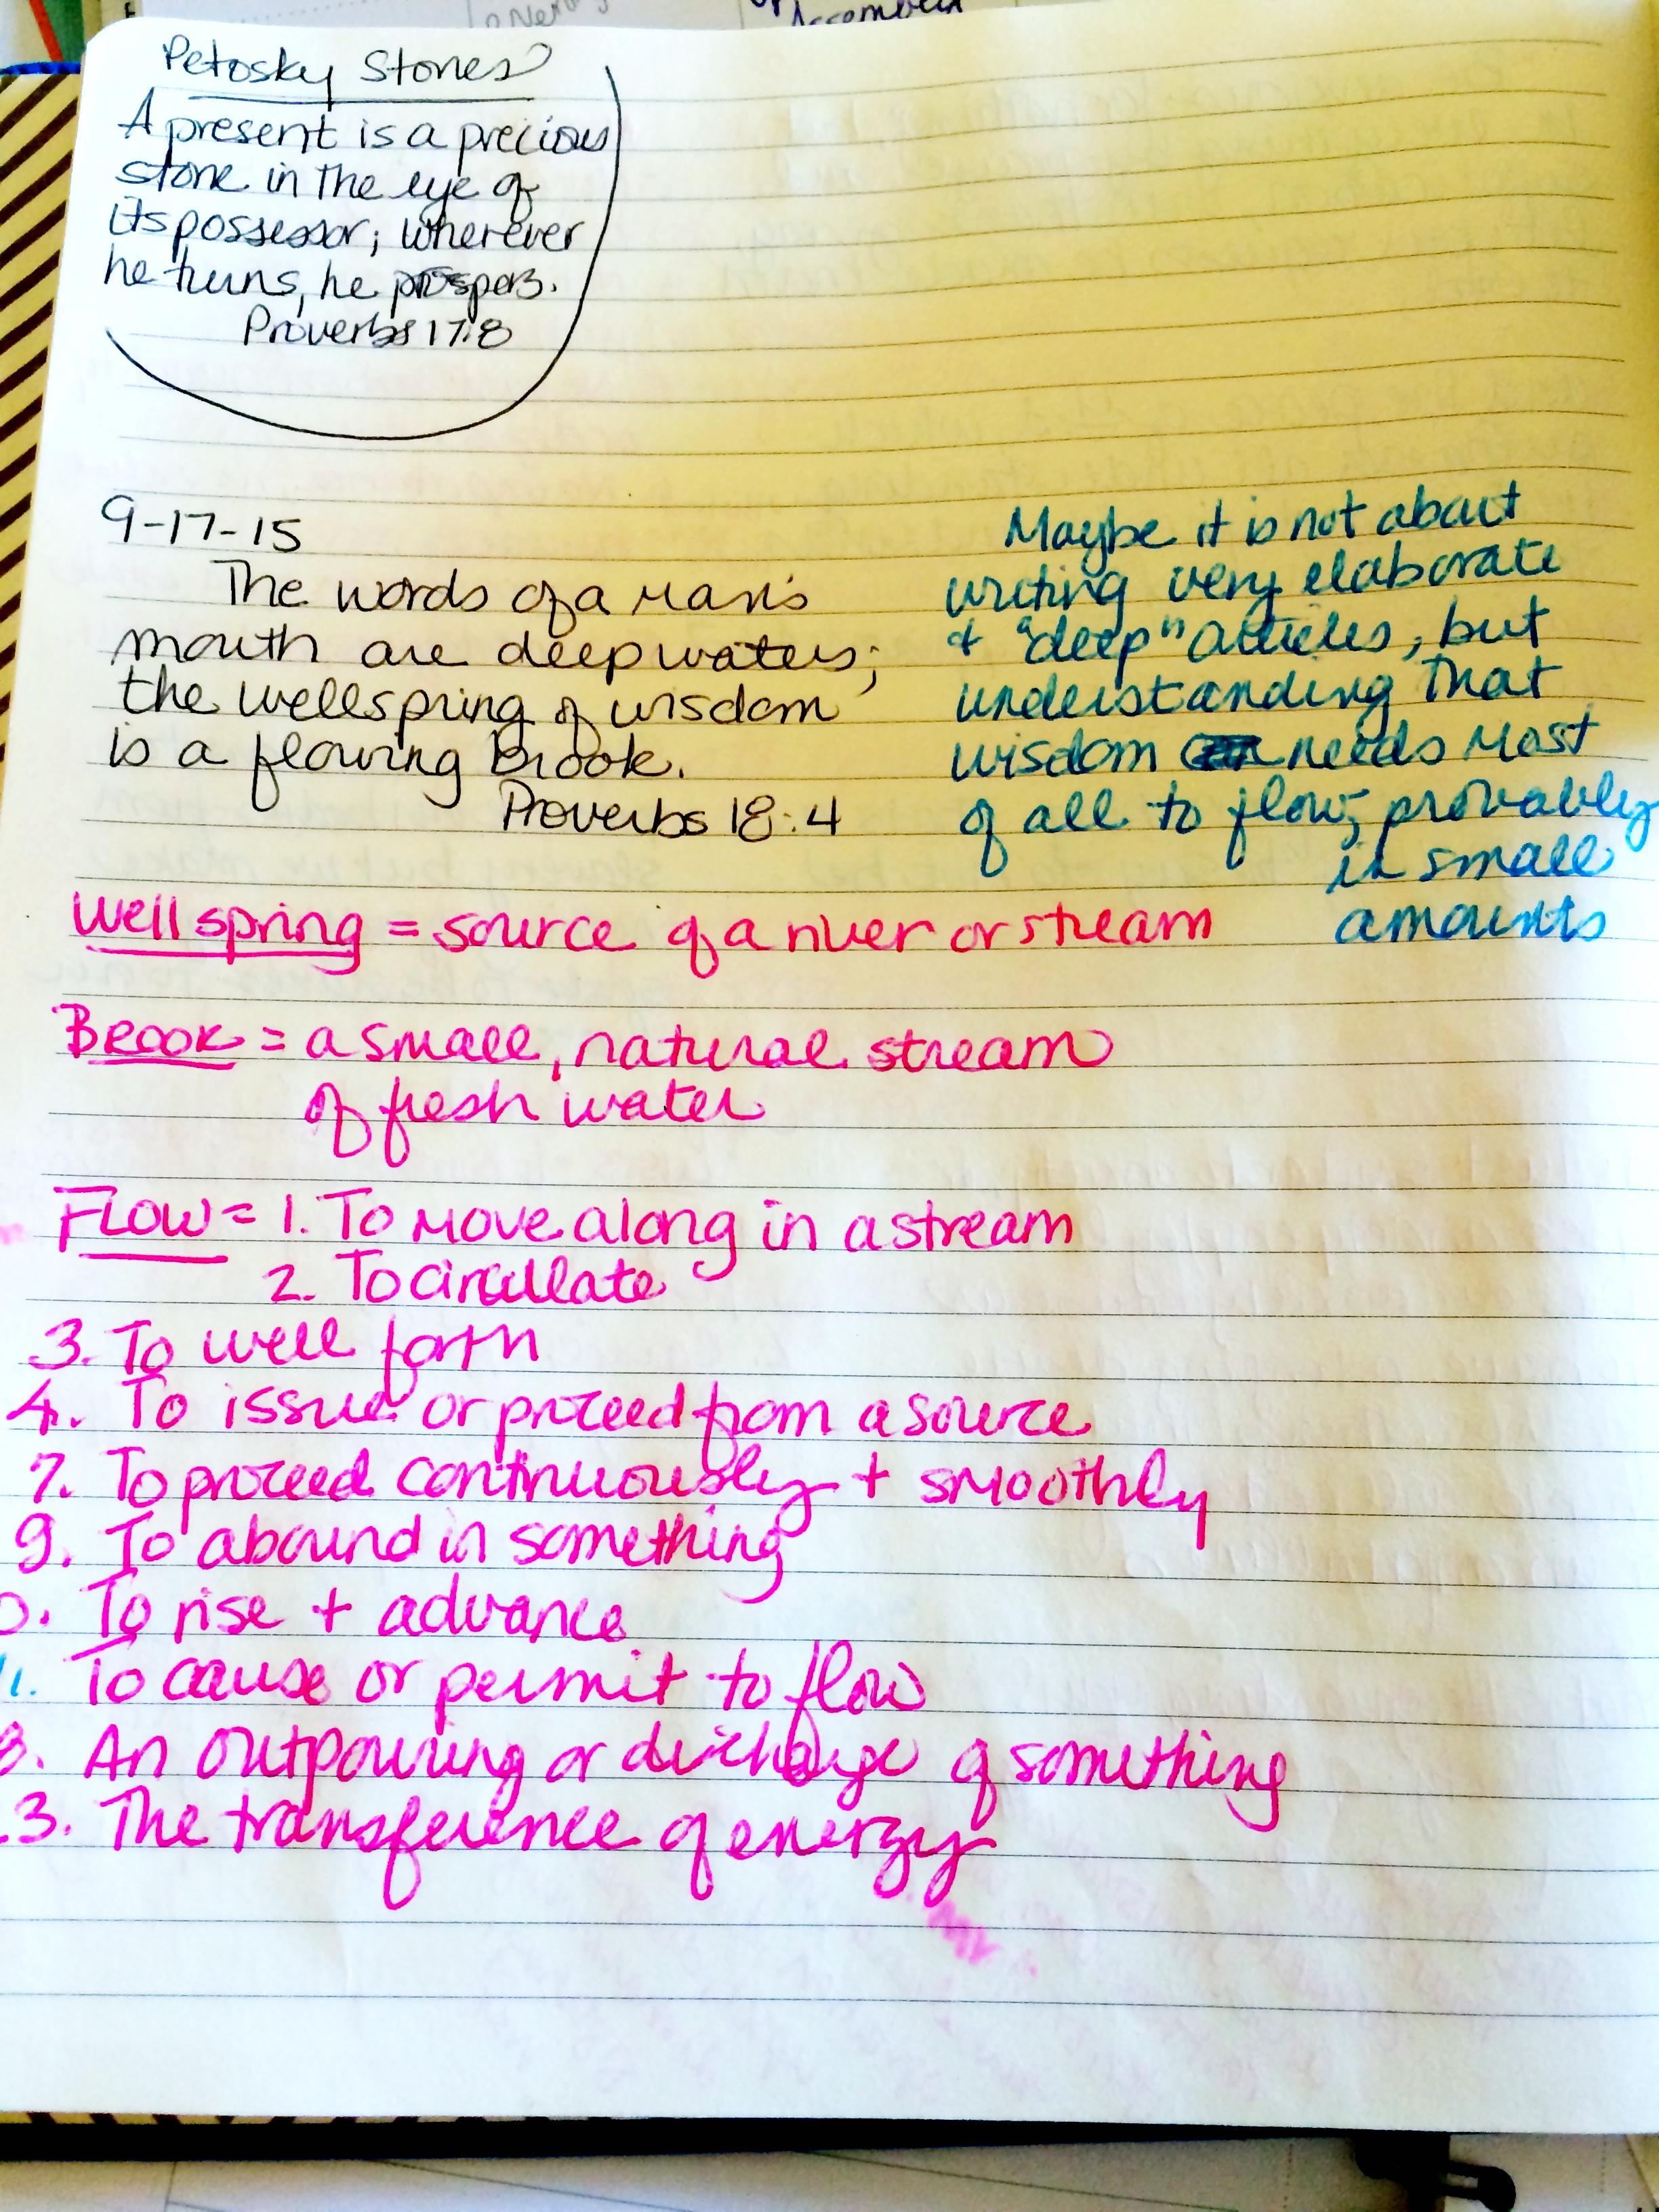 Assembly
Petosky Stones
A present is a precious
stone in the eye of
its possessor; wherever
he turns, he prospers.
Proverbs 17:8
9-17-15
The words of a man's
mouth are deep waters;
the wellspring of wisdom
is a flowing brook.
Proverbs 18:4
Maybe it is not about
writing very elaborate
+ "deep" articles, but
understanding that
wisdom needs most
of all to flow, provably
in small
amounts
Wellspring = source of a river or stream
Brook = a small, natural stream
of fresh water
FLOW = 1. To move along in a stream
2. To circulate
3. To well forth
4. To issue or proceed from a source
7. To proceed continuously + smoothly
9. To abound in something
0. To rise + advance
1. To cause or permit to flow
8. An outpouring or discharge of something
3. The transference of energy